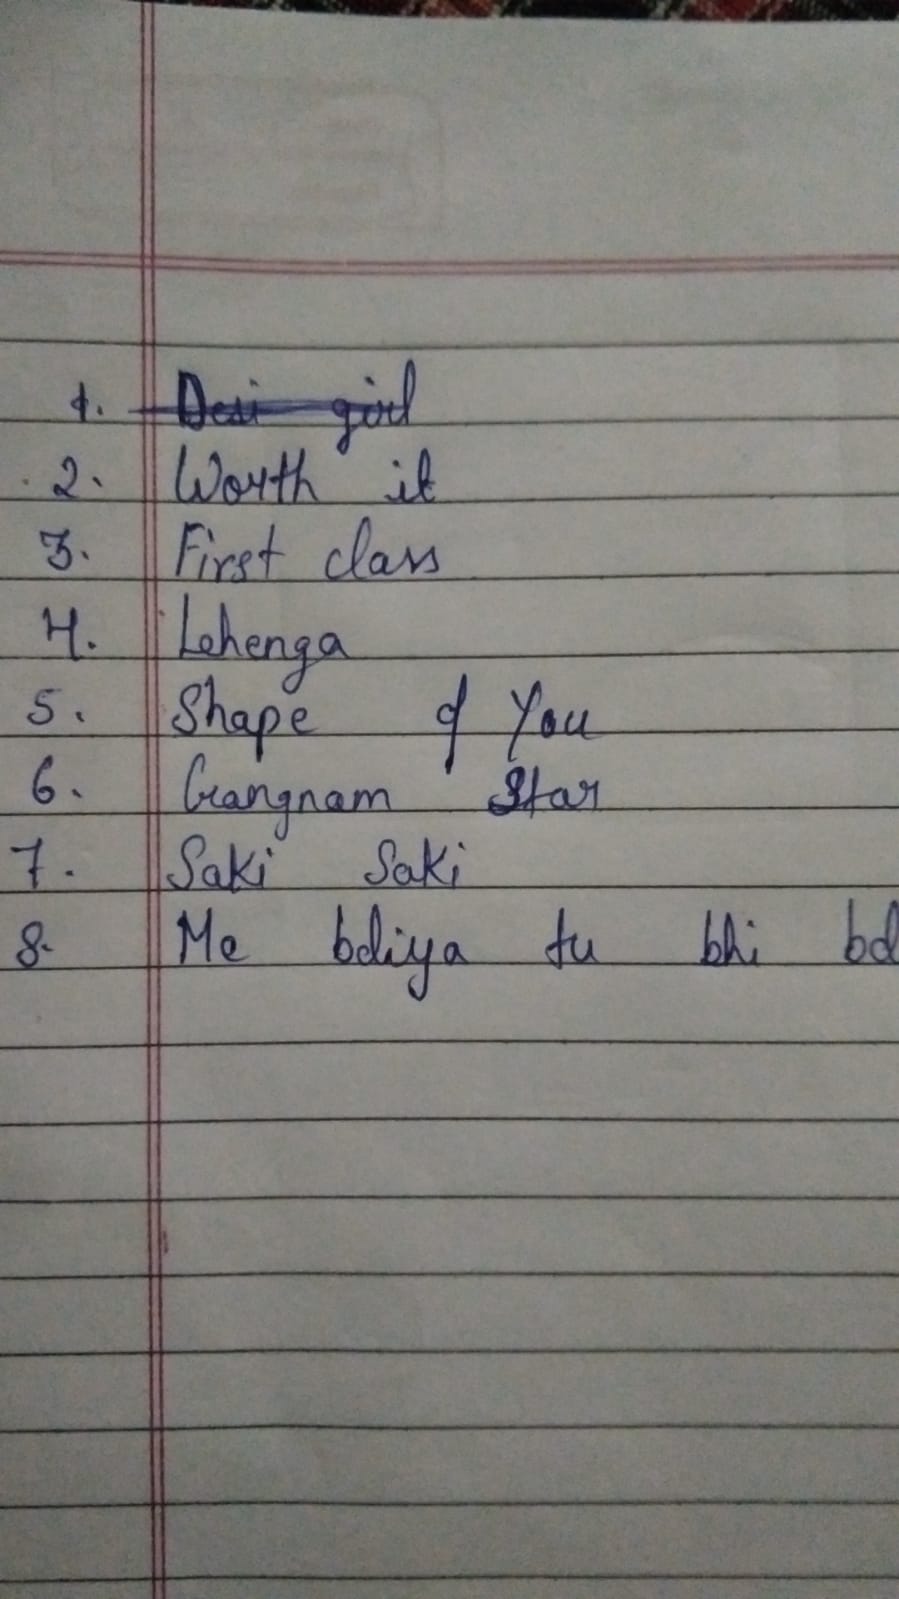 1. Desi girl
2. Worth it
3. First class
4. Lehenga
5. Shape of You
6. Gangnam Star
7. Saki Saki
8. Me bdiya tu bhi bd